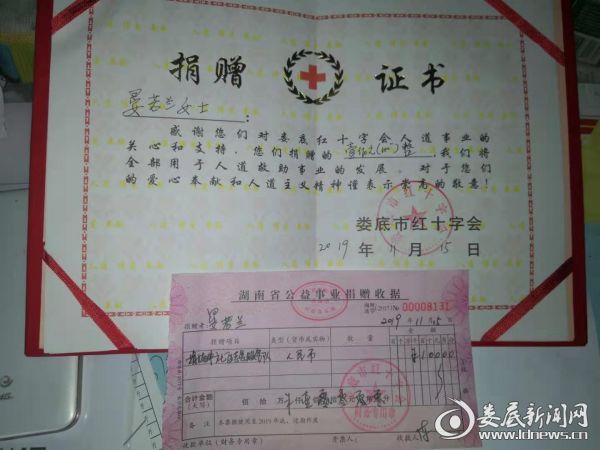 捐赠 证书
晏若兰女士：
感谢您们对娄底红十字会人道事业的
关心和支持，您们捐赠的壹佰元(100)整，我们将
全部用于人道救助事业的发展。对于您们
的爱心奉献和人道主义精神谨表示崇高的敬意！
娄底市红十字会
2019年11月15日
湖南省公益事业捐赠收据
№ 00008131
捐赠者：晏若兰 2019年11月15日
捐赠项目 类型（货币或实物） 数量 金额
人民币 ¥10000
合计金额（大写） 佰 拾 万 仟
备注 本票据使用至2019年底，过期作废
收款单位（财务专用章） 开票人： 收款人
娄底新闻网
www.ldnews.cn